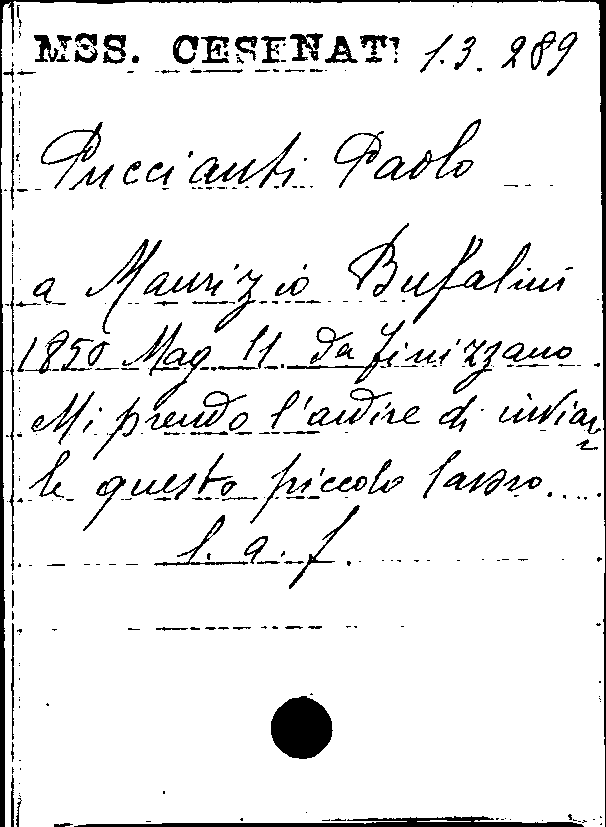 MSS. CESENATI 1.3.289
Puccianti Paolo
a Maurizio Bufalini
1850 Mag 11. da Finizzano
Mi prendo l'ardire di inviar=
le questo piccolo lavoro....
l. a. f.